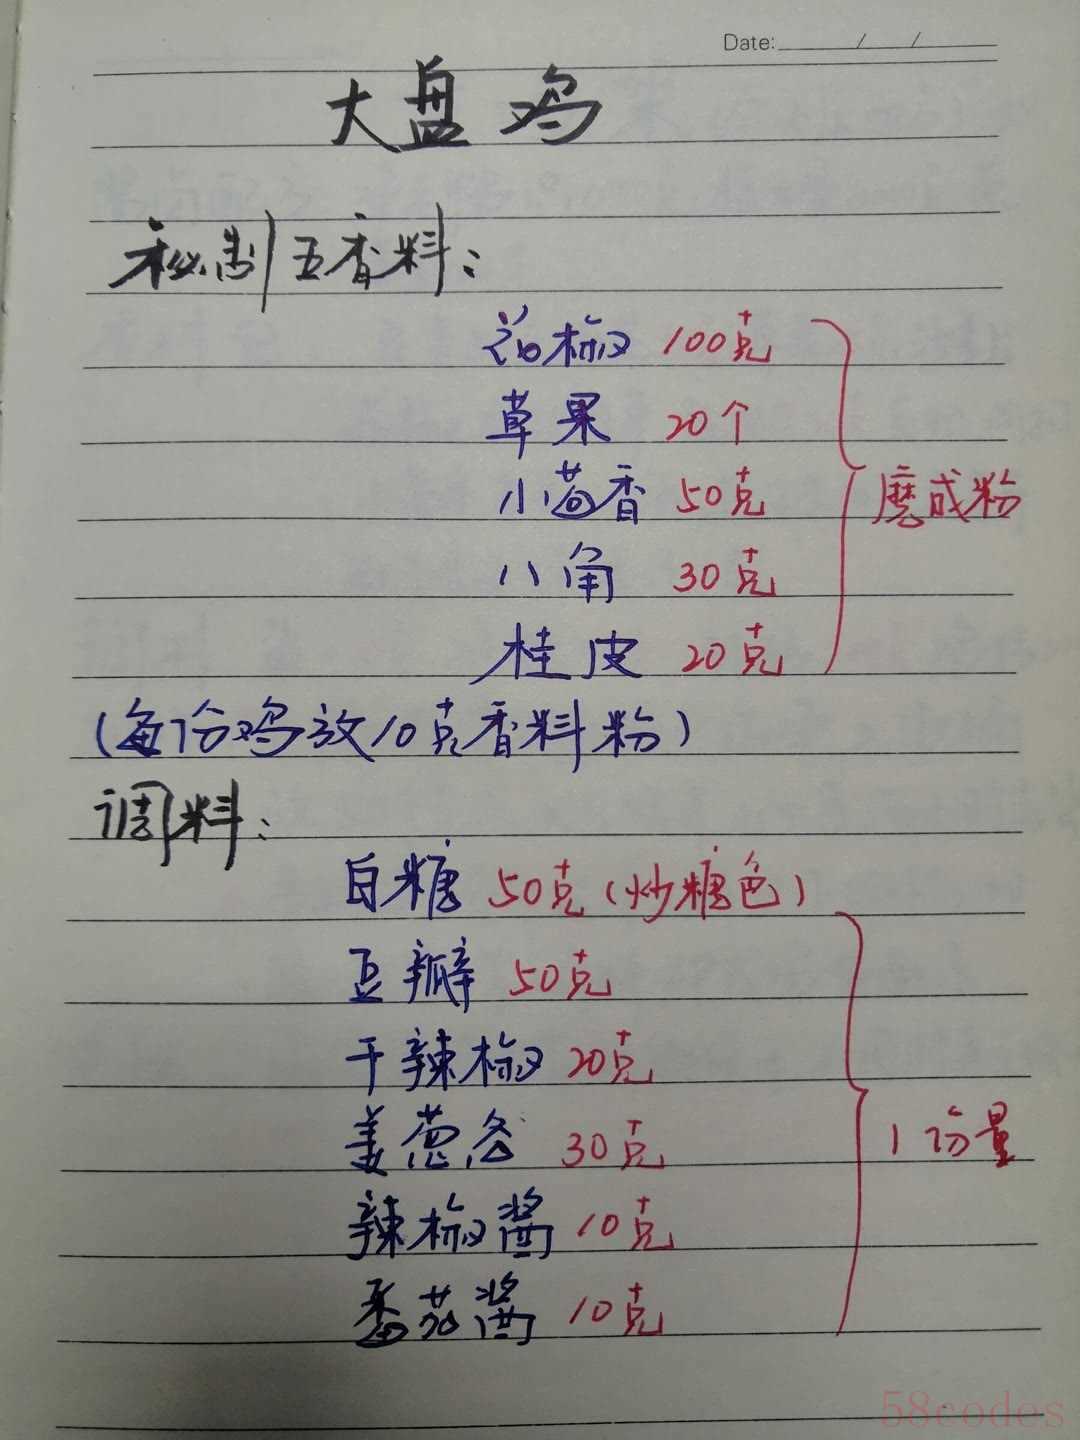 Date: / /
大盘鸡
秘制五香料：
花椒 100克
草果 20个
小茴香 50克
八角 30克
磨成粉
桂皮 20克
（每份鸡放10克香料粉）
调料：
白糖 50克（炒糖色）
豆瓣 50克
干辣椒 20克
姜葱各 30克
1份量
辣椒酱 10克
番茄酱 10克
58codes